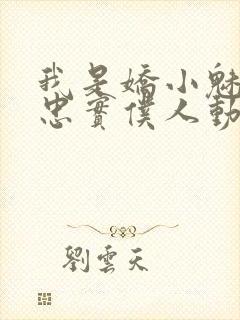 我是嬌小魅
忠實僕人動
劉雲天